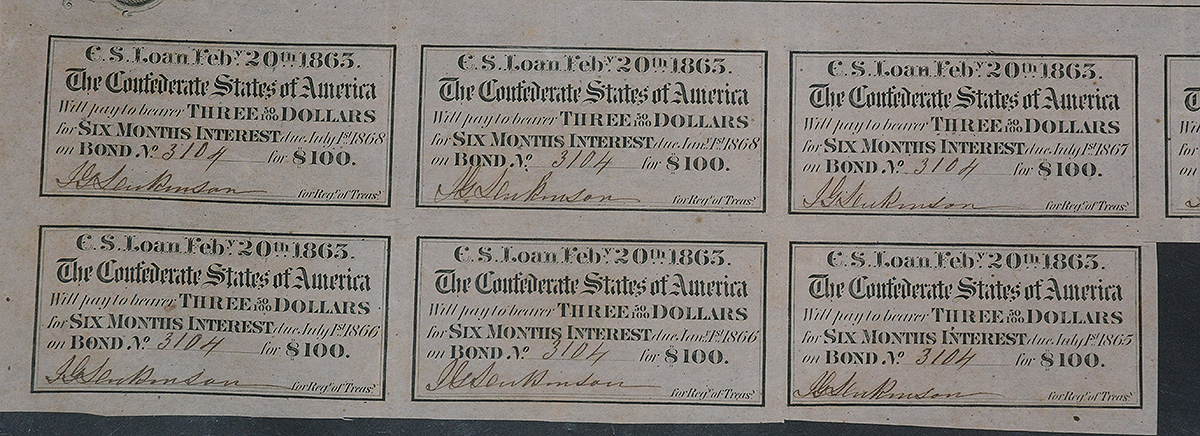 C.S. Loan Feb.y 20th 1863.
The Confederate States of America
Will pay to bearer THREE 50/100 DOLLARS
for SIX MONTHS INTEREST due July 1st 1868
on BOND No. 3104 for $100.
JG Jenkinson for Regr. of Treasy.
C.S. Loan Feb.y 20th 1863.
The Confederate States of America
Will pay to bearer THREE 50/100 DOLLARS
for SIX MONTHS INTEREST due Jany. 1st 1868
on BOND No. 3104 for $100.
JG Jenkinson for Regr. of Treasy.
C.S. Loan Feb.y 20th 1863.
The Confederate States of America
Will pay to bearer THREE 50/100 DOLLARS
for SIX MONTHS INTEREST due July 1st 1867
on BOND No. 3104 for $100.
JG Jenkinson for Regr. of Treasy.
C.S. Loan Feb.y 20th 1863.
The Confederate States of America
Will pay to bearer THREE 50/100 DOLLARS
for SIX MONTHS INTEREST due July 1st 1866
on BOND No. 3104 for $100.
JG Jenkinson for Regr. of Treasy.
C.S. Loan Feb.y 20th 1863.
The Confederate States of America
Will pay to bearer THREE 50/100 DOLLARS
for SIX MONTHS INTEREST due Jany. 1st 1866
on BOND No. 3104 for $100.
JG Jenkinson for Regr. of Treasy.
C.S. Loan Feb.y 20th 1863.
The Confederate States of America
Will pay to bearer THREE 50/100 DOLLARS
for SIX MONTHS INTEREST due July 1st 1865
on BOND No. 3104 for $100.
JG Jenkinson for Regr. of Treasy.